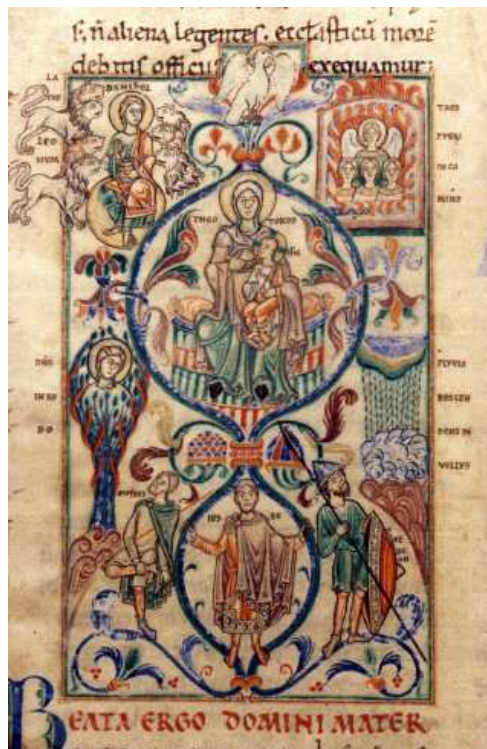 n̄ aliena legentes. eccłasticū morē
debitis officiis exequamur;
LA
CVS
LEO
NVM
DANIHEL
TRES
PVERI
IN CA
MINO
THEO TOKOS
DN̄S
IN RV
B O
PLVVIA
DESCEN
DENS IN
VELLVS
MOYSES
IES SE
BEATA ERGO DOMINI MATER